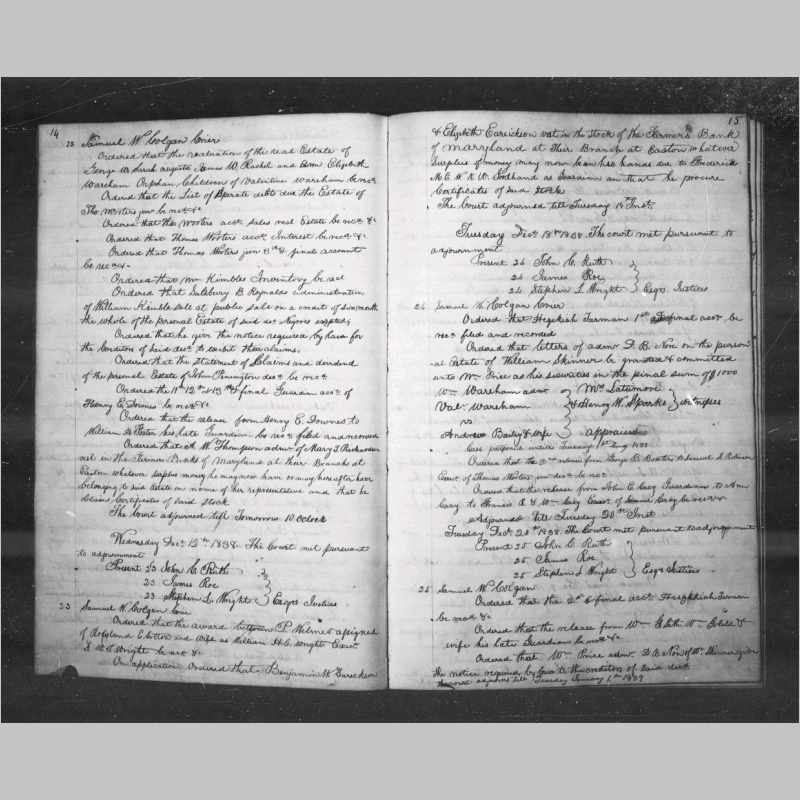 14
23 Samuel W Colgan Crier
Ordered that the valuation of the real Estate of
George W Sarah Augusta James W. Rachel and Ann Elizabeth
Wareham Orphan Children of Valentine Wareham be recd
Ordered that the List of Sperate debts due the Estate of
Tho Wooters junr be recd &c
Ordered that the Wooters acct sales real Estate be recd &c
Ordered that Thomas Wooters acct Interest be recd &c
Ordered that Thomas Wooters junr 3rd & final account
be recd &c
Ordered that Wm Kimbles Inventory be recd
Ordered that Sulsbury B Reynolds administration
of William Kimble sell at public sale on a credit of six month
the whole of the personal Estate of said decd Negroes excepted
Ordered that he give the notice required by law for
the Creditors of said decd to exibit their claims.
Ordered that the statement of Claims and dividend
of the personal Estate of John Penington decd be recd
Ordered the 11th 12th & 13th & final Guardian acct of
Henry E Townes be recd &c
Ordered that the release from Henry E. Townes to
William Foster his late Guardian be recd filed and recorded
Ordered that A W Thompson admr of Mary T Richardson
in the Farmers Banks of Maryland at their Branch at
Easton whatever surplus money he may now have or may hereafter have
belonging to said Estate in name of her representative and that he
obtain Certificates of said Stock
The Court adjourned till Tomorrow 10 Oclock
Wednesday Decr 12th 1838. The Court met pursuant
to adjournment
Present 23 John C Ruth
23 James Roe
23 Stephen L. Wright } Esqrs Justices
23 Samuel W. Colgan Crier
Ordered that the award between P. Wilmer assigned
of Rowland Elbtt and wife vs William H. C. Wright Exect
S. W. C Wright be recd &c
On application Ordered that Benjamin W. Eareckson
15
& Elizabeth Eareickson vest in the stock of the Farmers Bank
of Maryland at their Branch at Easton whatever
Surplus of money may now be in his hands due to Frederick
Goodhand as Guardian and that he procure
Certificates of said stock
The Court adjourned till Tuesday 18th Inst.
Tuesday Decr 18th 1838. The court met pursuant to
adjournment
Present 24 John C. Ruth
24 James Roe
24 Stephen L Wright } Esqrs Justices
24 Samuel W Colgan Crier
Ordered that Hezekiah Furman 1st final acct be
recd filed and recorded
Ordered that letters of admr D. B. Non on the person
al Estate of William Skinner be granted & committed
unto Wm Price as his sureties in the penal sum of $1000
Wm Wareham admr
Val. Wareham
vs
Andrew Baily & wife
Mrs Latamore
& Henry W. Sparks } Witnesses
appraised
Ordered that the 2nd release from George B Baxter to Samuel S Robinson
Exect of Thomas Wooters junr decd be recd
Ordered that the release from John E Cary Guardian to Ann
Cary to Francis A & Wm Cary Exect of Cary be recd &c
Adjourned till Tuesday 20th Inst
Tuesday Decr 20th 1838 The Court met pursuant to adjournment
Present 25 John C Ruth
25 James Roe
25 Stephen L Wright } Esqrs Justices
25 Samuel W. Colgan
Ordered that the 2nd & final acct Hezekiah Furman
be recd &c
Ordered that the release from Wm &
wife his late Guardian be recd &c
Ordered that Wm Price admr D. B Non of Wm Skinner give
the notice required by law to the creditors of said decd
Court adjourned till Tuesday January 1st 1839